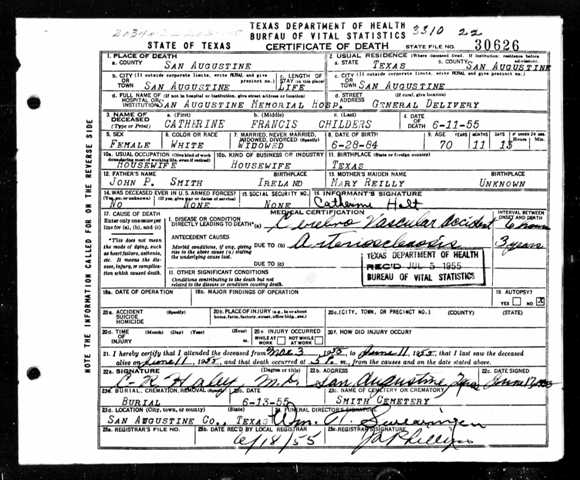 TEXAS DEPARTMENT OF HEALTH
BUREAU OF VITAL STATISTICS
3310 22
STATE OF TEXAS
CERTIFICATE OF DEATH
STATE FILE NO. 30626
1. PLACE OF DEATH
a. COUNTY
SAN AUGUSTINE
2. USUAL RESIDENCE (Where deceased lived. If institution, residence before admission)
a. STATE
TEXAS
b. COUNTY
SAN AUGUSTINE
b. CITY (If outside corporate limits, write RURAL and give precinct no.)
OR
TOWN SAN AUGUSTINE
c. LENGTH OF STAY
LIFE
c. CITY (If outside corporate limits, write RURAL and give precinct no.)
OR
TOWN SAN AUGUSTINE
d. FULL NAME OF (If not in hospital or institution, give street address or location)
HOSPITAL OR
INSTITUTION SAN AUGUSTINE MEMORIAL HOSP.
d. STREET ADDRESS (If rural, give location)
GENERAL DELIVERY
3. NAME OF DECEASED (Type or Print)
a. (First) b. (Middle) c. (Last)
CATHERINE FRANCIS CHILDERS
4. DATE OF DEATH
6-11-55
5. SEX
FEMALE
6. COLOR OR RACE
WHITE
7. MARRIED, NEVER MARRIED, WIDOWED, DIVORCED (Specify)
WIDOWED
8. DATE OF BIRTH
6-28-84
9. AGE YEARS MONTHS DAYS
70 11 13
10a. USUAL OCCUPATION
HOUSEWIFE
10b. KIND OF BUSINESS OR INDUSTRY
HOUSEWIFE
11. BIRTHPLACE (State or foreign country)
TEXAS
12. FATHER'S NAME BIRTHPLACE
JOHN P. SMITH IRELAND
13. MOTHER'S MAIDEN NAME BIRTHPLACE
MARY REILLY UNKNOWN
14. WAS DECEASED EVER IN U.S. ARMED FORCES?
NO NONE
15. SOCIAL SECURITY NO.
NONE
16. INFORMANT'S SIGNATURE
Catherine Halt
17. CAUSE OF DEATH
Enter only one cause per line for (a), (b), and (c)
MEDICAL CERTIFICATION
INTERVAL BETWEEN ONSET AND DEATH
I. DISEASE OR CONDITION
DIRECTLY LEADING TO DEATH (a) Cerebro Vascular Accident 6 hours
*This does not mean the mode of dying, such as heart failure, asthenia, etc. It means the disease, injury, or complication which caused death.
ANTECEDENT CAUSES
Morbid conditions, if any, giving rise to the above cause (a) stating the underlying cause last.
DUE TO (b) Arteriosclerosis 3 years
DUE TO (c)
TEXAS DEPARTMENT OF HEALTH
REC'D JUL 5 1955
BUREAU OF VITAL STATISTICS
II. OTHER SIGNIFICANT CONDITIONS
Conditions contributing to the death but not related to the disease or condition causing death.
18a. DATE OF OPERATION
18b. MAJOR FINDINGS OF OPERATION
19. AUTOPSY?
YES NO
20a. ACCIDENT SUICIDE HOMICIDE (Specify)
20b. PLACE OF INJURY (e.g., in or about home, farm, factory, street, office bldg., etc.)
20c. (CITY, TOWN, OR PRECINCT NO.) (COUNTY) (STATE)
20d. TIME OF INJURY (Month) (Day) (Year) (Hour)
20e. INJURY OCCURRED
WHILE AT WORK NOT WHILE AT WORK
20f. HOW DID INJURY OCCUR?
21. I hereby certify that I attended the deceased from 3 1955, to June 11, 1955, that I last saw the deceased
alive on June 11, 1955, and that death occurred at m., from the causes and on the date stated above.
22a. SIGNATURE (Degree or title)
C. R. Haley M.D.
22b. ADDRESS
San Augustine, Texas
22c. DATE SIGNED
June
23a. BURIAL, CREMATION, REMOVAL (Specify)
BURIAL
23b. DATE
6-13-55
23c. NAME OF CEMETERY OR CREMATORY
SMITH CEMETERY
23d. LOCATION (City, town, or county) (State)
SAN AUGUSTINE CO., TEXAS
24. FUNERAL DIRECTOR'S SIGNATURE
Wm. H. Swearingen
25a. REGISTRAR'S FILE NO.
25b. DATE REC'D BY LOCAL REGISTRAR
6/18/55
25c. REGISTRAR'S SIGNATURE
NOTE THE INFORMATION CALLED FOR ON THE REVERSE SIDE